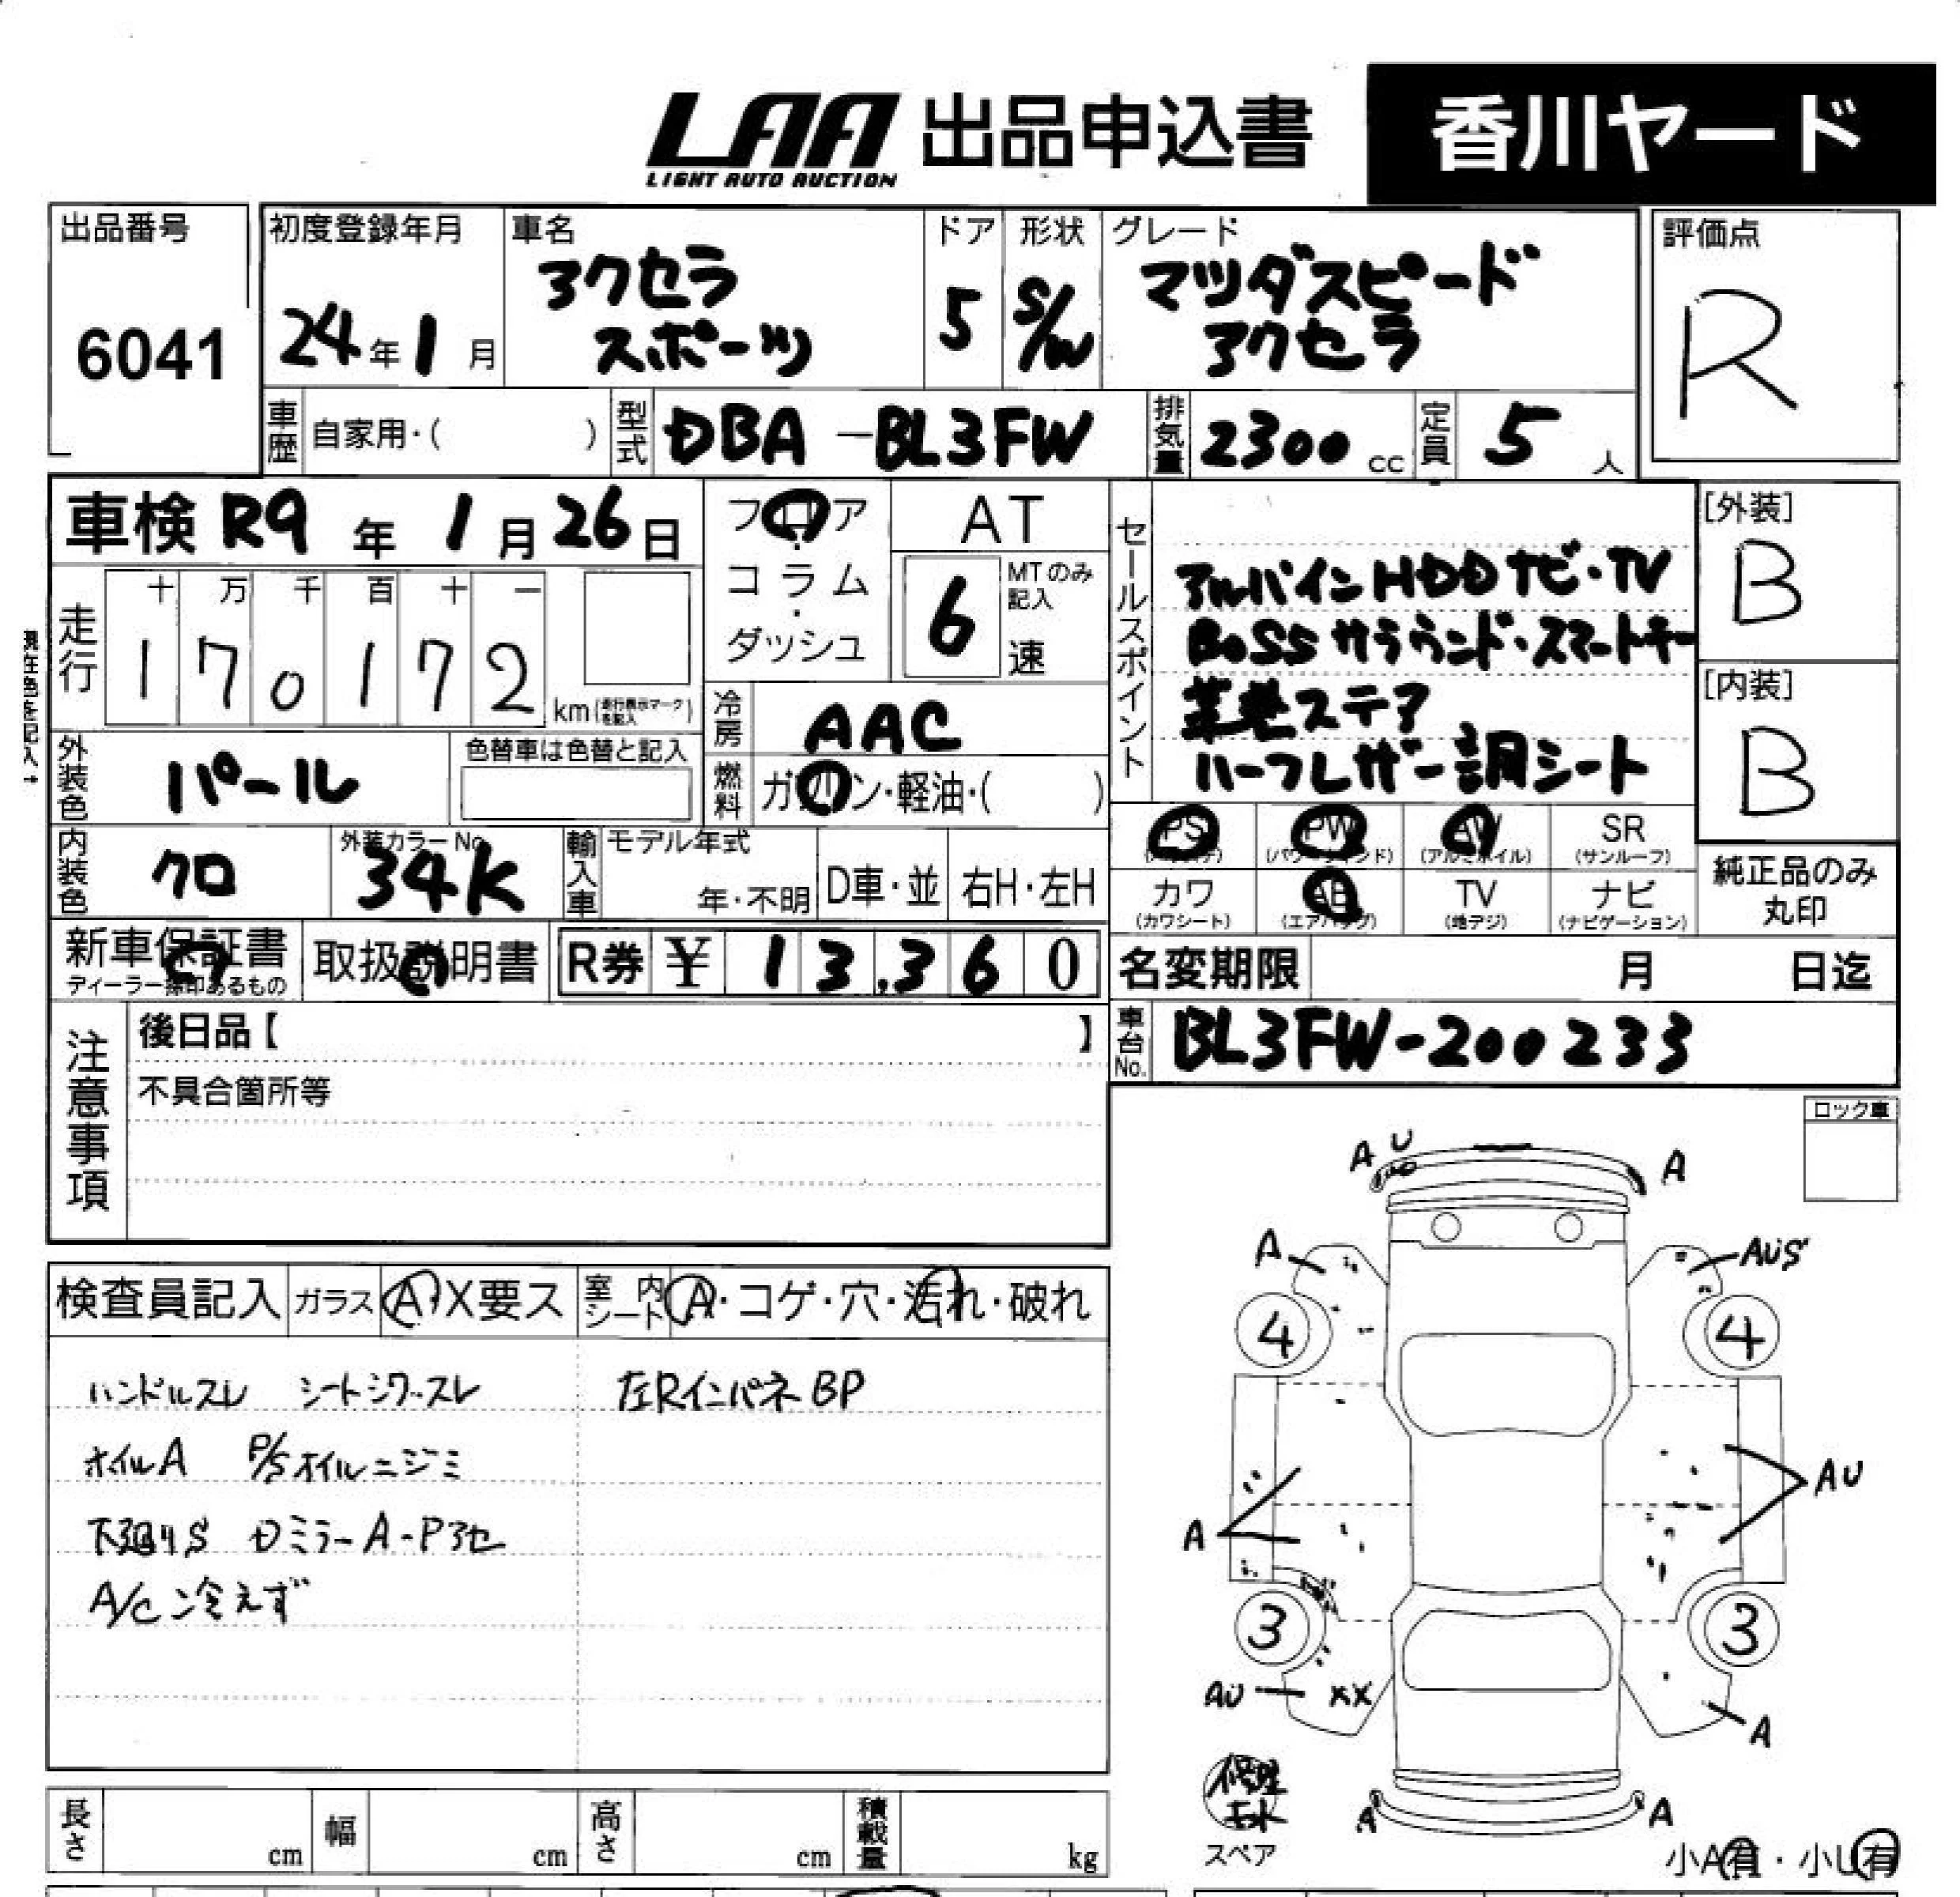 LAA 出品申込書 香川ヤード
LIGHT AUTO AUCTION
出品番号
6041
初度登録年月
24年1月
車名
アクセラ
スポーツ
ドア
5
形状
S/W
グレード
マツダスピード
アクセラ
評価点
R
車歴 自家用・( )
型式 DBA-BL3FW
排気量 2300 cc
定員 5 人
車検 R9年1月26日
フロア・コラム・ダッシュ
AT
6 MTのみ記入
速
セールスポイント
アルパインHDDナビ・TV
BOSSサラウンド・スマートキー
革巻ステア
ハーフレザー調シート
[外装]
B
[内装]
B
現在色を記入→
走行
十 万 千 百 十 一
1 7 0 1 7 2
km(走行表示マークを記入)
冷房 AAC
外装色 パール
色替車は色替と記入
燃料 ガソリン・軽油・( )
内装色 クロ
外装カラーNo.
34K
輸入車 モデル年式
年・不明
D車・並
右H・左H
PS
(パワステ)
PW
(パワーウインド)
AW
(アルミホイル)
SR
(サンルーフ)
カワ
(カワシート)
AB
(エアバッグ)
TV
(地デジ)
ナビ
(ナビゲーション)
純正品のみ
丸印
新車保証書
ディーラー捺印あるもの
取扱説明書
R券 ¥ 13,360
名変期限 月 日迄
注意事項
後日品【 】
不具合箇所等
車台No. BL3FW-200233
ロック車
検査員記入 ガラス A・X要ス 室内シート A・コゲ・穴・汚れ・破れ
ハンドルスレ シートシワ・スレ 左RインパネBP
ホイルA P/Sオイルニジミ
下廻りS DミラーA-Pアセ
A/C冷えず
A U A
A AUS
4 4
A AU
3 3
AU XX A
A A
修理
キット
スペア
小A有・小U有
長さ cm 幅 cm 高さ cm 積載量 kg